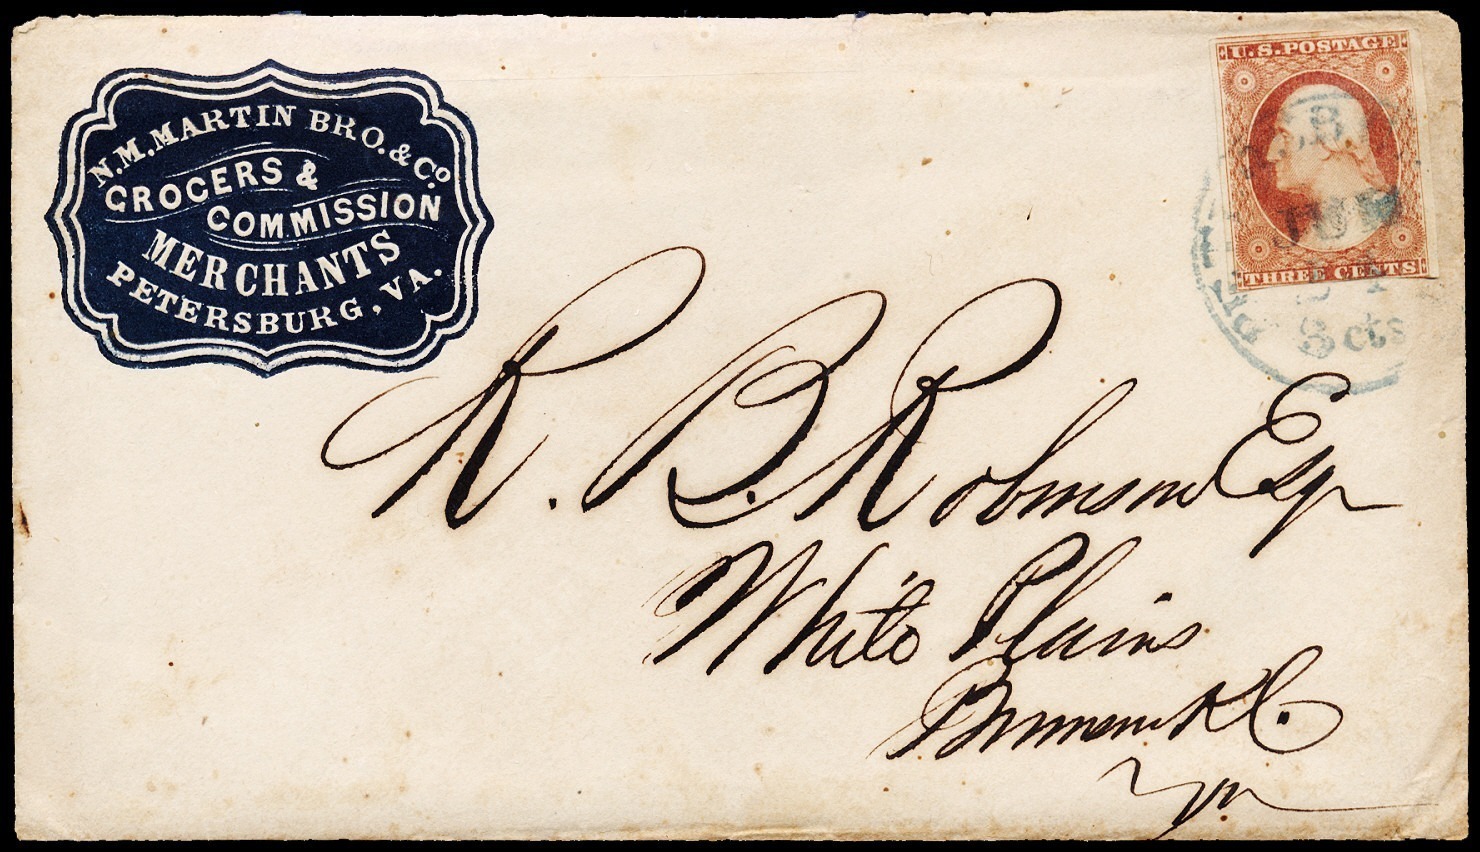 N.M. MARTIN BRO. & Co.
GROCERS &
COMMISSION
MERCHANTS
PETERSBURG, VA.
U.S. POSTAGE
THREE CENTS
JUN
3 cts
R. B. Robinson Esqr
White Plains
Brunswick C.
Va